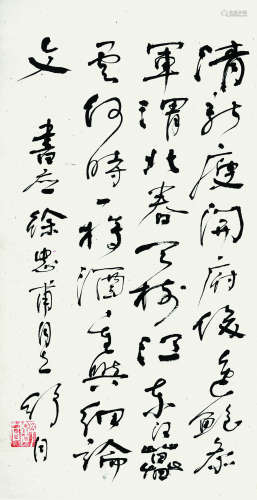 清新庾開府俊逸鮑參
軍渭北春天樹江東日暮
雲何時一樽酒重與細論
文
書應徐忠甫同志